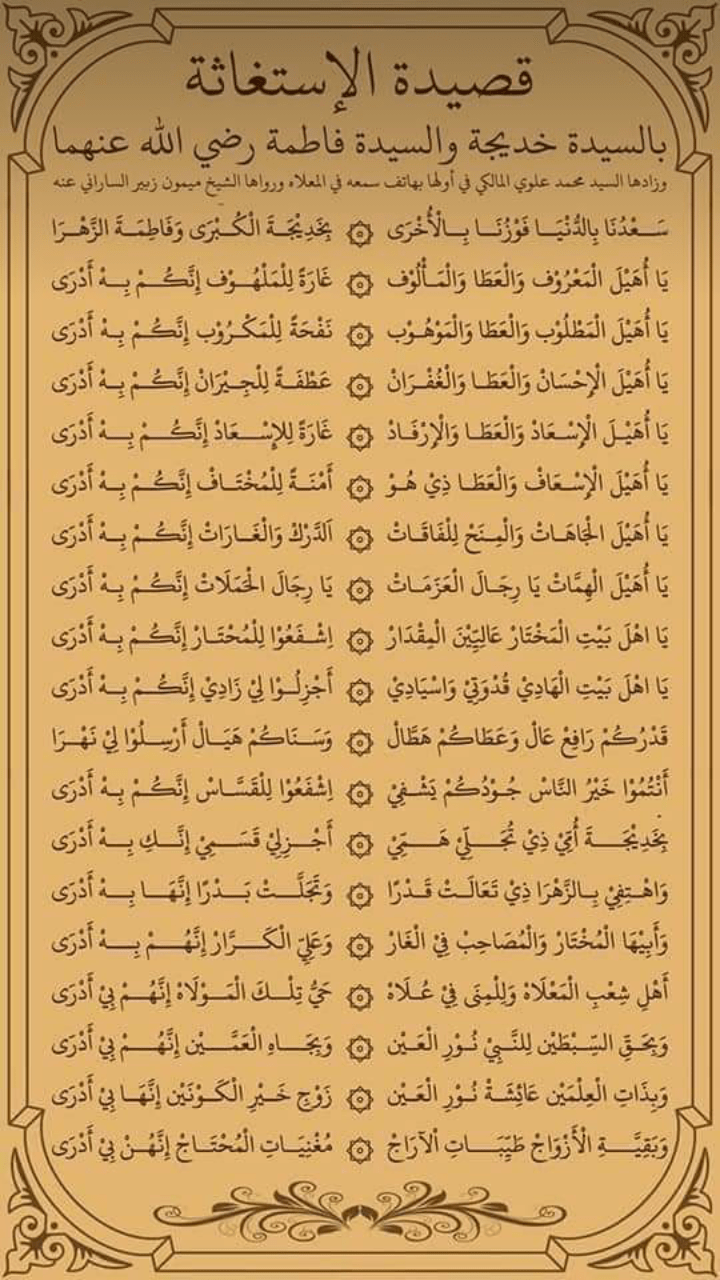 قصيدة الإستغاثة
بالسيدة خديجة والسيدة فاطمة رضي الله عنهما
وزادها السيد محمد علوي المالكي في أولها بهاتف سمعه في المعلاه ورواها الشيخ ميمون زبير الساراني عنه
سَعْدُنَا بِالدُّنْيَا فَوْزُنَا بِالْأُخْرَى ۞ بِخَدِيْجَةَ الْكُبْرَى وَفَاطِمَةَ الزَّهْرَا
يَا أُهَيْلَ الْمَعْرُوْف وَالْعَطَا وَالْمَأْلُوْف ۞ غَارَةً لِلْمَلْهُوْف إِنَّكُمْ بِهْ أَدْرَى
يَا أُهَيْلَ الْمَطْلُوْب وَالْعَطَا وَالْمَوْهُوْب ۞ نَفْحَةً لِلْمَكْرُوْب إِنَّكُمْ بِهْ أَدْرَى
يَا أُهَيْلَ الْإِحْسَانْ وَالْعَطَا وَالْغُفْرَانْ ۞ عَطْفَةً لِلْجِيْرَانْ إِنَّكُمْ بِهْ أَدْرَى
يَا أُهَيْلَ الْإِسْعَادْ وَالْعَطَا وَالْإِرْفَادْ ۞ غَارَةً لِلإِسْعَادْ إِنَّكُمْ بِهْ أَدْرَى
يَا أُهَيْلَ الْإِسْعَافْ وَالْعَطَا ذِيْ هُوْ ۞ أَمْنَةً لِلْمُخْتَافْ إِنَّكُمْ بِهْ أَدْرَى
يَا أُهَيْلَ الْجَاهَاتْ وَالْمِنَحْ لِلْفَاقَاتْ ۞ اَلدَّرَكْ وَالْغَارَاتْ إِنَّكُمْ بِهْ أَدْرَى
يَا أُهَيْلَ الْهِمَّاتْ يَا رِجَالَ الْعَزَمَاتْ ۞ يَا رِجَالَ الْحَمَلَاتْ إِنَّكُمْ بِهْ أَدْرَى
يَا اهْلَ بَيْتِ الْمَخْتَارْ عَالِيِّيْنَ الْمِقْدَارْ ۞ اِشْفَعُوْا لِلْمُحْتَارْ إِنَّكُمْ بِهْ أَدْرَى
يَا اهْلَ بَيْتِ الْهَادِيْ قُدْوَتِيْ وَاسْيَادِيْ ۞ أَجْزِلُوْا لِيْ زَادِيْ إِنَّكُمْ بِهْ أَدْرَى
قَدْرُكُمْ رَافِعْ عَالْ وَعَطَاكُمْ هَطَّالْ ۞ وَسَنَاكُمْ هَيَالْ أَرْسِلُوْا لِيْ نَهْرَا
أَنْتُمُوْا خَيْرُ النَّاسْ جُوْدُكُمْ يَشْفِيْ ۞ اِشْفَعُوْا لِلْقَسَّاسْ إِنَّكُمْ بِهْ أَدْرَى
بِخَدِيْجَةَ أُمِّيْ ذِيْ تُجَلِّيْ هَمِّيْ ۞ أَجْزِلِيْ قَسَمِيْ إِنَّكِ بِهْ أَدْرَى
وَاهْتِفِيْ بِالزَّهْرَا ذِيْ تَعَالَتْ قَدْرًا ۞ وَتَجَلَّتْ بَدْرًا إِنَّهَا بِهْ أَدْرَى
وَأَبِيْهَا الْمُخْتَارْ وَالْمُصَاحِبْ فِيْ الْغَارْ ۞ وَعَلِيّ الْكَرَّارْ إِنَّهُمْ بِهْ أَدْرَى
أَهْلِ شِعْبِ الْمَعْلَاهْ وَلِلْمِنَى فِيْ عُلَاهْ ۞ حَيُّ تِلْكَ الْمَوْلَاهْ إِنَّهُمْ بِيْ أَدْرَى
وَبِحَقِّ السِّبْطَيْن لِلنَّبِيْ نُوْرِ الْعَيْن ۞ وَبِجَاهِ الْعَمَّيْن إِنَّهُمْ بِيْ أَدْرَى
وَبِذَاتِ الْعِلْمَيْن عَائِشَةْ نُوْرِ الْعَيْن ۞ زَوْجِ خَيْرِ الْكَوْنَيْن إِنَّهَا بِيْ أَدْرَى
وَبَقِيَّةِ الْأَزْوَاجْ طَيِّبَاتِ الْآرَاجْ ۞ مُغْنِيَاتِ الْمُحْتَاجْ إِنَّهُنْ بِيْ أَدْرَى